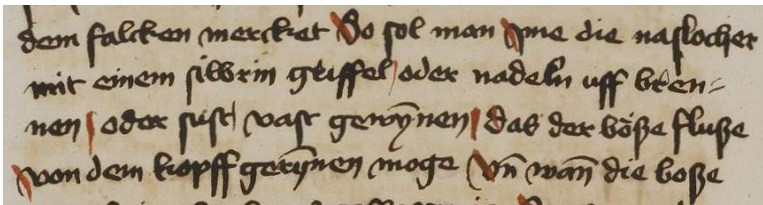 dem falcken mercket So sol man Jme die naslocher
mit einem silbrin griffel oder nadeln uff bren⸗
nen oder sust vast gerÿnen das der böße fluße
von dem kopff gerÿnnen moge Vn̄ wan̄ die boße